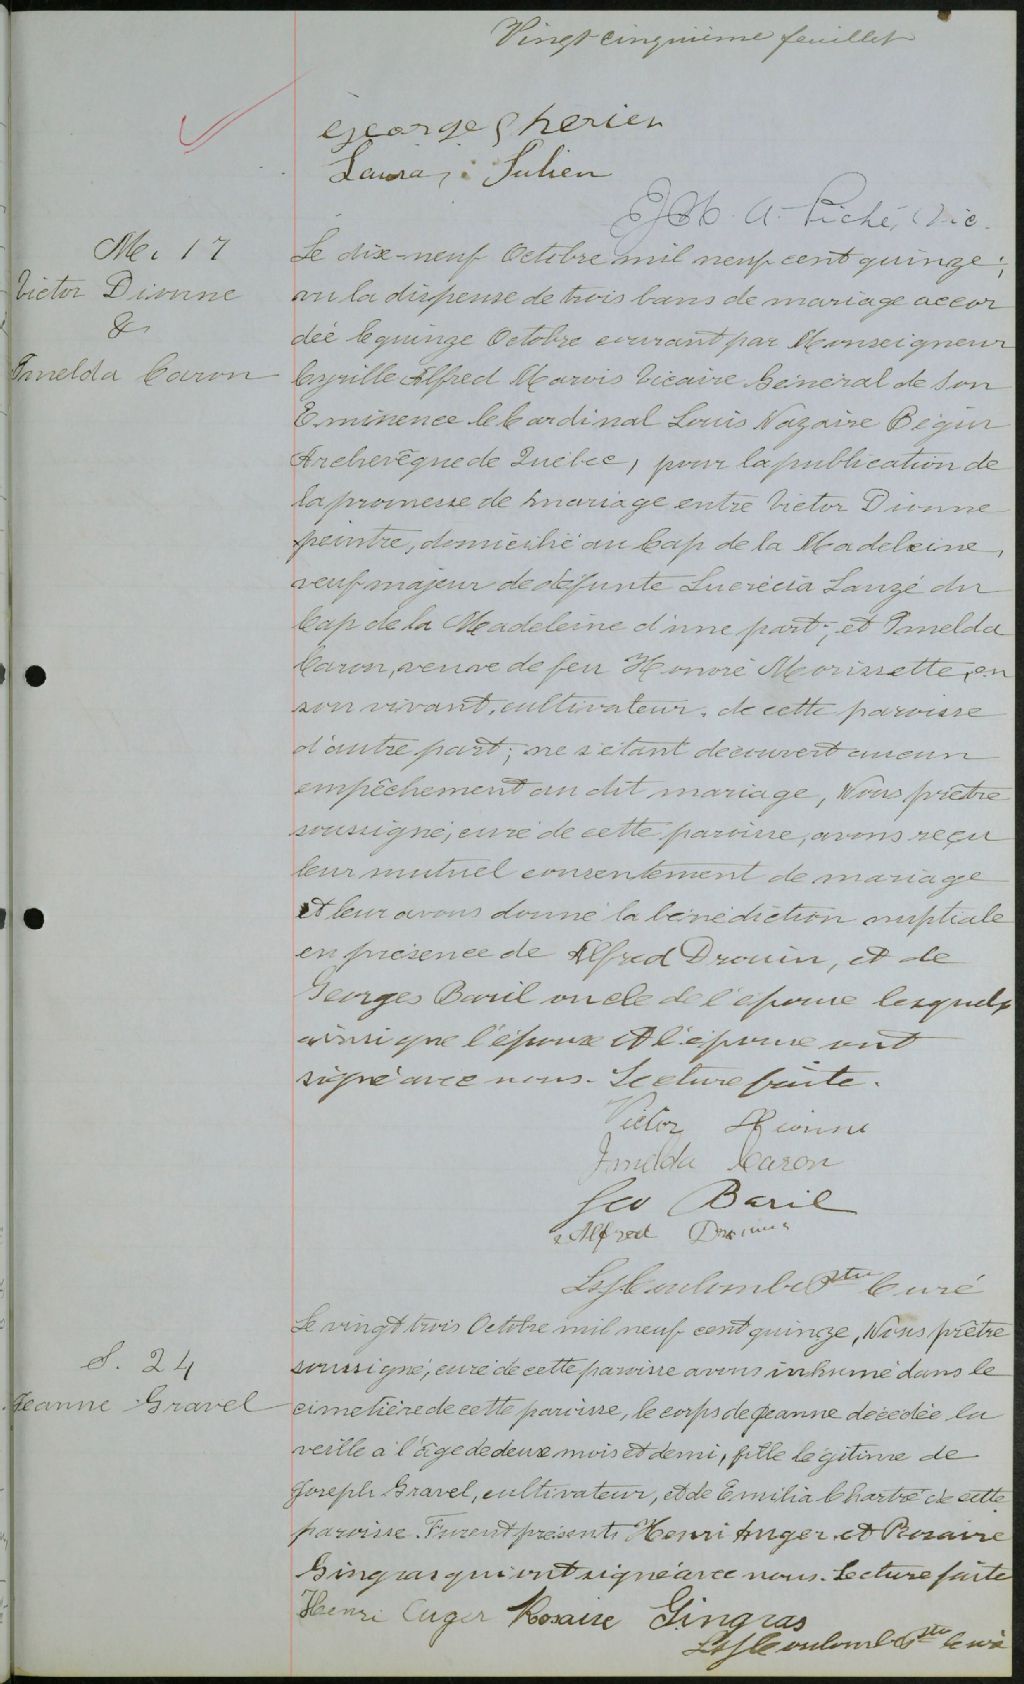 Vingt cinquième feuillet
George Therien
Laura Julien
A. Piché, Vic.
M. 17
Victor Dionne
&
Imelda Caron
Le dix-neuf Octobre mil neuf cent quinze;
vu la dispense de trois bans de mariage accor
deé le quinze Octobre courant par Monseigneur
Cyrille Alfred Marois Vicaire Général de Son
Eminence le Cardinal Louis Nazaire Bégin
Archevêque de Québec, pour la publication de
la promesse de mariage entre Victor Dionne
peintre, domicilié au Cap de la Madeleine,
veuf majeur de défunte Lucrécia Lauzé du
Cap de la Madeleine d'une part; et Imelda
Caron, veuve de feu Honoré Morissette, en
son vivant, cultivateur, de cette paroisse
d'autre part; ne s'étant decouvert aucun
empêchement au dit mariage, Nous prêtre
soussigné, curé de cette paroisse, avons reçu
leur mutuel consentement de mariage
et leur avons donné la bénédiction nuptiale
en présence de Alfred Drouin, et de
Georges Baril oncle de l'épouse lesquels
ainsi que l'époux et l'épouse ont
signé avec nous. Lecture faite.
Victor Dionne
Imelda Caron
Geo Baril
Alfred Drouin
Coulombe Ptre Curé
S. 24
Jeanne Gravel
Le vingt trois Octobre mil neuf cent quinze, Nous prêtre
soussigné, curé de cette paroisse avons inhumé dans le
cimetière de cette paroisse, le corps de Jeanne décédée la
veille à l'âge de deux mois et demi, fille légitime de
Joseph Gravel, cultivateur, et de Emilia de cette
paroisse. Furent présents Henri Auger et Rosaire
Gingras qui ont signé avec nous. Lecture faite
Henri Auger Rosaire Gingras
Coulombe Ptre Curé